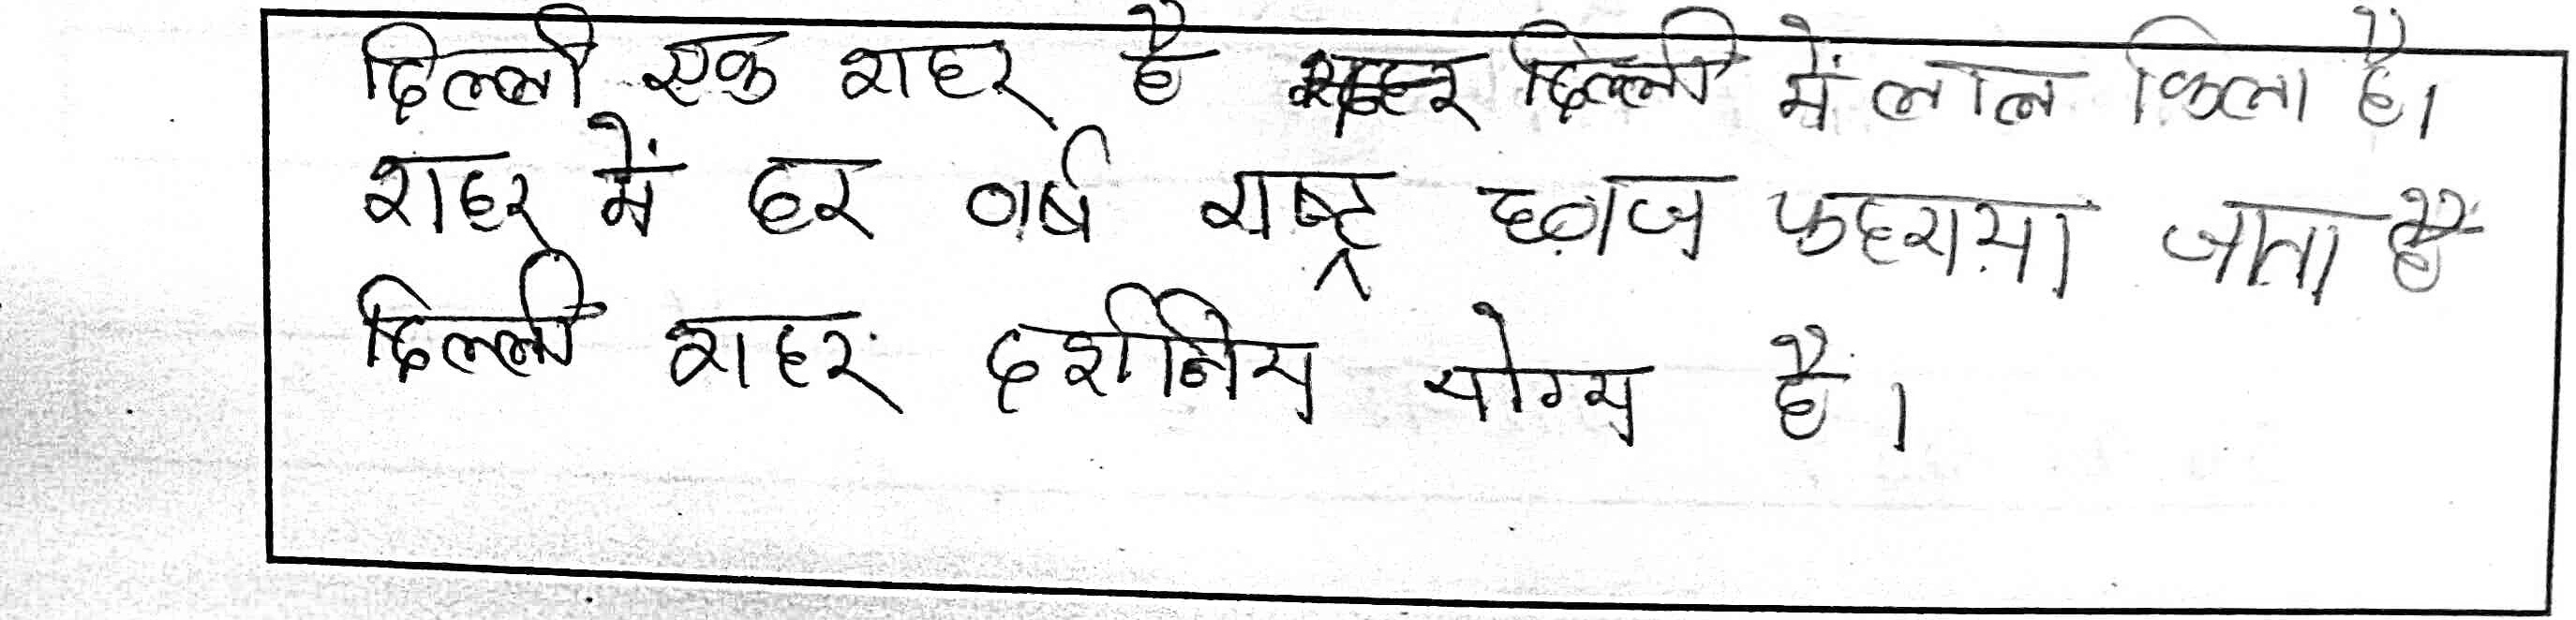 दिल्ली एक शहर है दिल्ली में लाल किला है।
शहर में हर वर्ष राष्ट्र ध्वज फहराया जाता है
दिल्ली शहर दर्शनिय योग्य है।